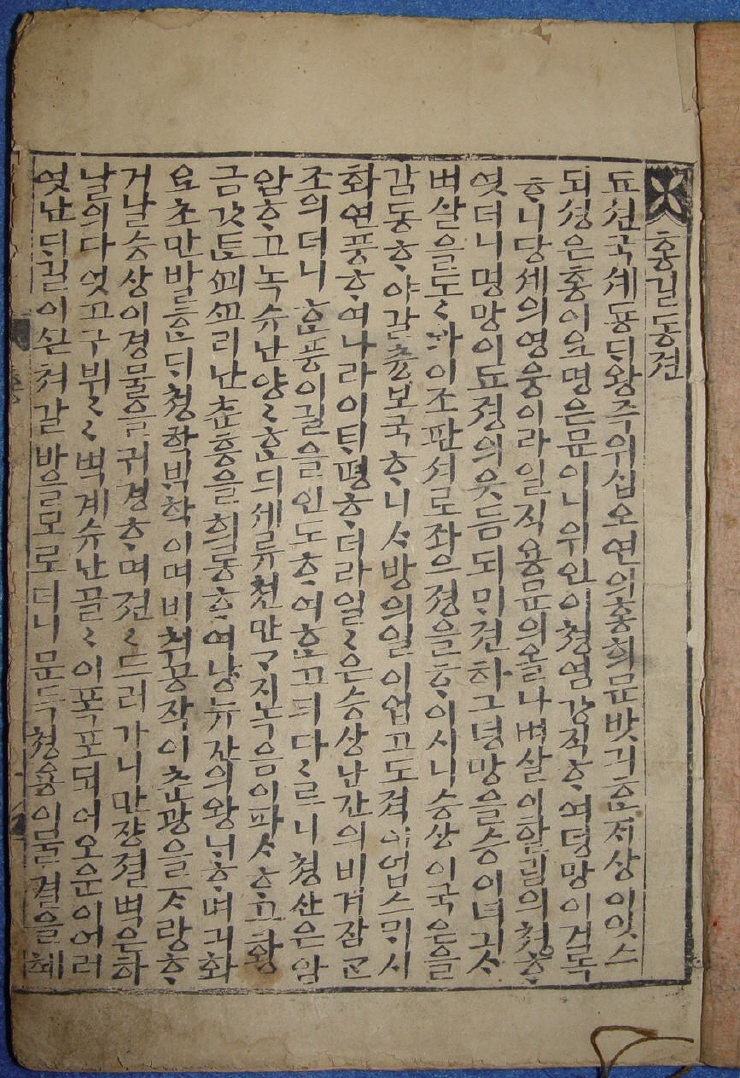 홍길동젼
됴션국셰둉ᄃᆡ왕즉위십오연의홍희문밧긔ᄒᆞᆫᄌᆡ상이잇스
되셩은홍이요명은문이니위인이쳥염강직ᄒᆞ여덕망이거록
ᄒᆞ니당셰의영웅이라일직용문의올나벼살이할림의쳐ᄒᆞ
엿더니명망이됴졍의읏듬되ᄆᆡ젼하그덕망을승이녀긔ᄉᆞ
벼살을도〱와이조판셔로좌으졍을ᄒᆞ이시니승상이국은을
감동ᄒᆞ야갈츙보국ᄒᆞ니ᄉᆞ방의일이업고도젹이업스ᄆᆡ시
화연풍ᄒᆞ여나라이ᄐᆡ평ᄒᆞ더라일〱은승상난간의비겨잠ᄭᅡᆫ
조의더니ᄒᆞᆫ풍이길을인도ᄒᆞ여ᄒᆞᆫ고ᄃᆡ다〱르니쳥산은암
암ᄒᆞ고녹슈난양〱ᄒᆞᆫᄃᆡ셰류쳔만ᄀᆞ지녹음이파ᄉᆞᄒᆞ고황
금갓ᄐᆞᆫᄭᅬᄭᅩ리난츈흥을희롱ᄒᆞ여냥뉴간의왕ᄂᆡᄒᆞ며긔화
요초만발ᄒᆞᆫᄃᆡ쳥학ᄇᆡᆨ학이며비취공작이츈광을ᄌᆞ랑ᄒᆞ
거날승상이경물을귀경ᄒᆞ며졈〱드러가니만장졀벽은하
날의다엇고구뷔〱〱벽계슈난골〱이폭포되어오운이어러
엿난ᄃᆡ길이ᄭᅳᆫ쳐갈바을모로더니문득쳥용이물결을헤